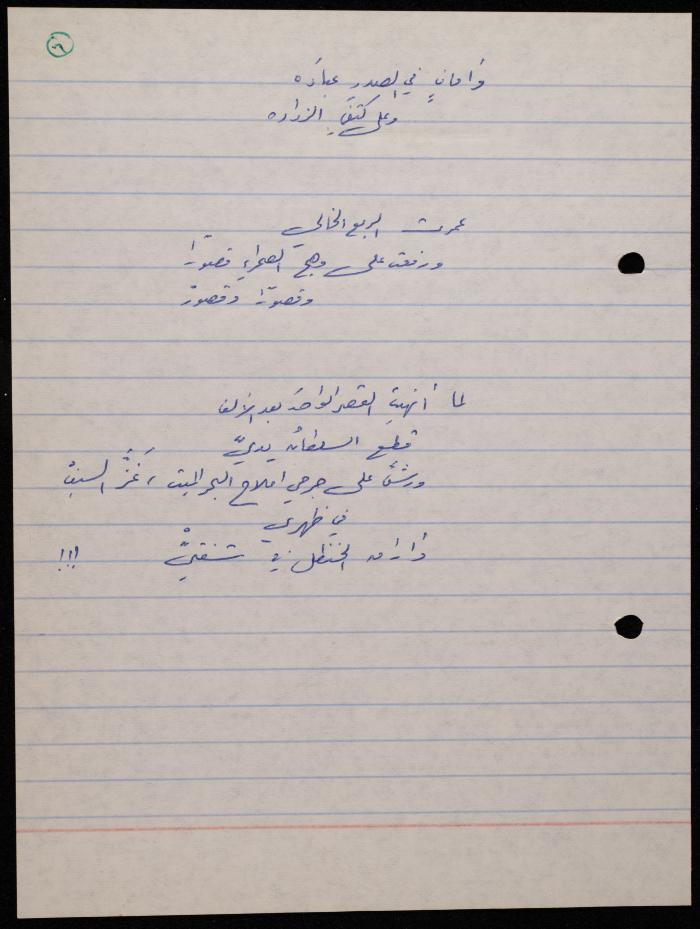 ٦
وأمانٍ في الصدرِ عباره
وعلى كتفي الزواره
عمرت الربع الخالي
ورفعت على وهج الصحراءِ قصورًا
وقصورًا وقصورْ
لما أنهيتِ القصر الواحدَ بعد الألف
قطع السلطانُ يديّ
ورشَّ على جرحي أملاح البحر الميت ، غَزَّ السيفْ
في ظهري
وأدار الحنظل في شفتيّْ !!!